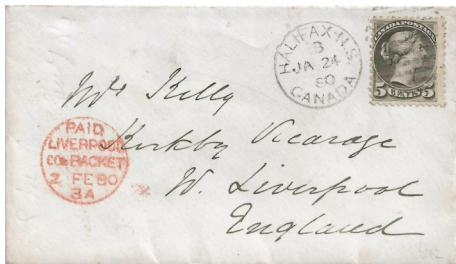 HALIFAX·N.S.
B
JA 24
80
CANADA
CANADA POSTAGE
5 CENTS 5
Mrs Kelly
Kirkby Vicarage
W. Liverpool
England
PAID
LIVERPOOL
COL PACKET
2 FE 80
3A